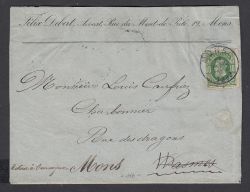 Félix Debert, Avocat, Rue du Mont-de-Piété, 19, Mons
Monsieur Louis
Charbonnier
Rue des dragons
Mons Wasmes